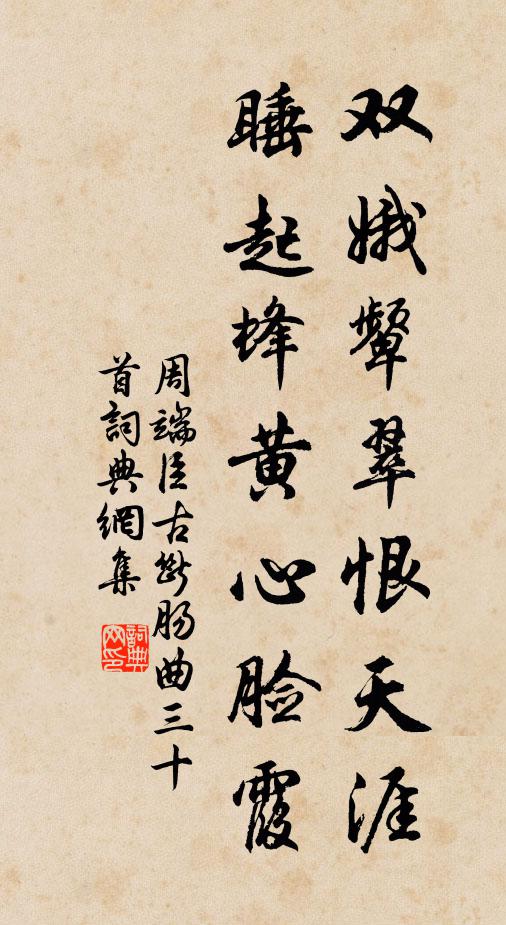 双娥颦翠恨天涯
睡起蜂黄心脸霞
周端臣古断肠曲三十
首詞典網集
詞典网印